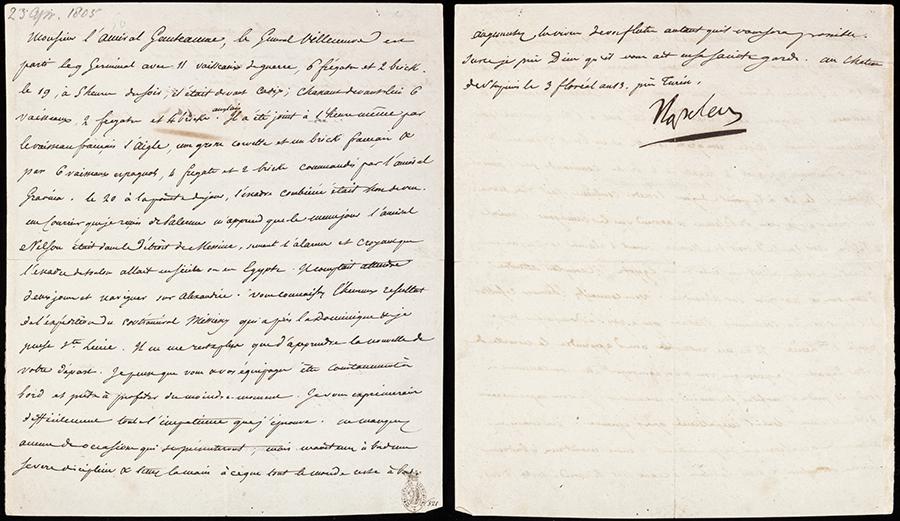 23 Apr. 1805
Monsieur l'amiral Ganteaume, le General Villeneuve est
parti le 9 Germinal avec 11 vaisseaux de guerre, 6 frégates et 2 brick.
le 19, à 5 heures du soir, il était devant Cadix, chassant devant lui 6
anglais
vaisseaux, 2 frégates et 4 bricks. Il a été joint à l'heure même par
le vaisseau français l'Aigle, une grosse corvette et un brick français &
par 6 vaisseaux espagnols, 4 frégates et 2 brick commandés par l'amiral
Gravina. le 20 à la pointe du jour, l'escadre combinée était hors de vue.
un Courier que je reçois de Palerme m'apprend que le même jour l'amiral
Nelson était dans le Détroit de Messine, semant l'alarme et croyant que
l'escadre de toulon allait en Sicile ou en Egypte. Il comptait attendre
deux jours et naviguer sur Alexandrie. Vous connaissez l'heureux resultat
de l'expédition du contreamiral Missiessy qui a pris la Dominique &
Ste Lucie. Il ne me reste plus que d'apprendre la nouvelle de
votre départ. Je pense que vos équipages sont constamment à
bord et prêts à profiter du moindre moment. Je vous exprimerais
difficilement toute l'impatience que j'éprouve. ne manquez
aucune occasion qui se présenterait, mais maintenez à bord une
severe discipline & tenez la main à ce que tout le monde reste à bord.
augmentez le vivres de vos flottes autant qu'il vous sera possible.
Sur ce je prie Dieu qu'il vous ait en sa sainte garde. au chateau
de Stupinis le 3 floréal an 13. près Turin.
Napoleon